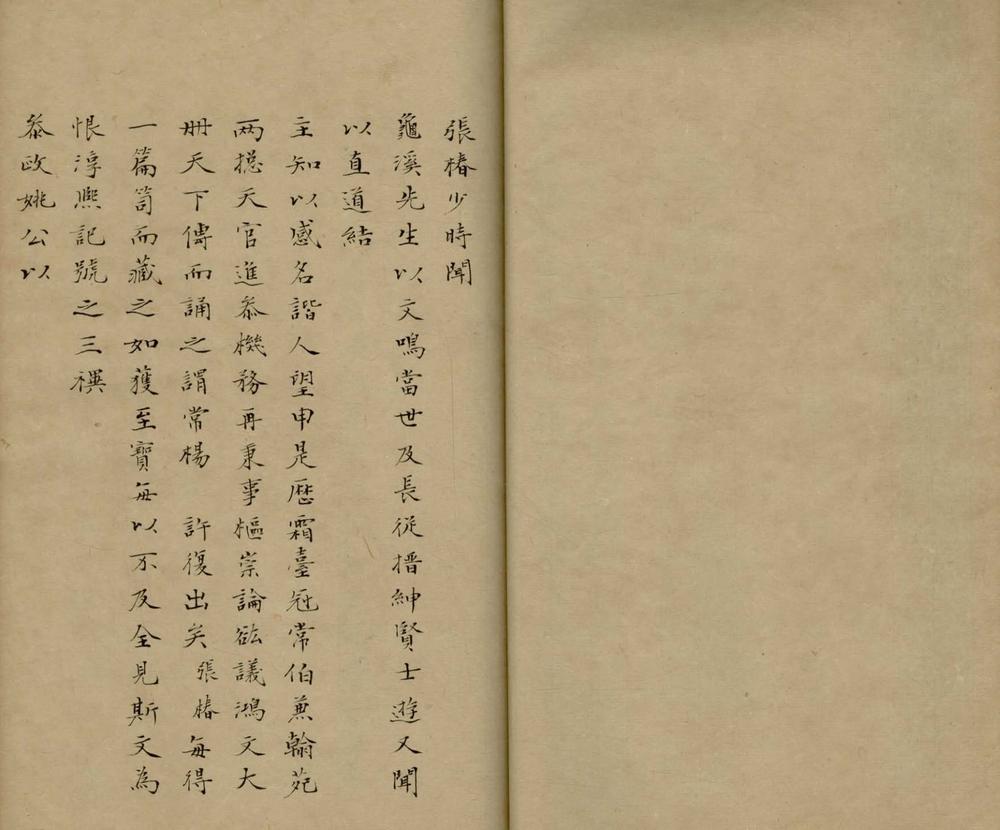 張椿少時聞
龜溪先生以文鳴當世及長從搢紳賢士遊又聞
以直道結
主知以感名諧人望由是歷霜臺冠常伯兼翰苑
兩揔天官進叅機務再秉事樞崇論谹議鴻文大
冊天下傳而誦之謂常楊 許復出矣張椿每得
一篇笥而藏之如獲至寶每以不及全見斯文為
恨淳熈記號之三禩
叅政姚公以